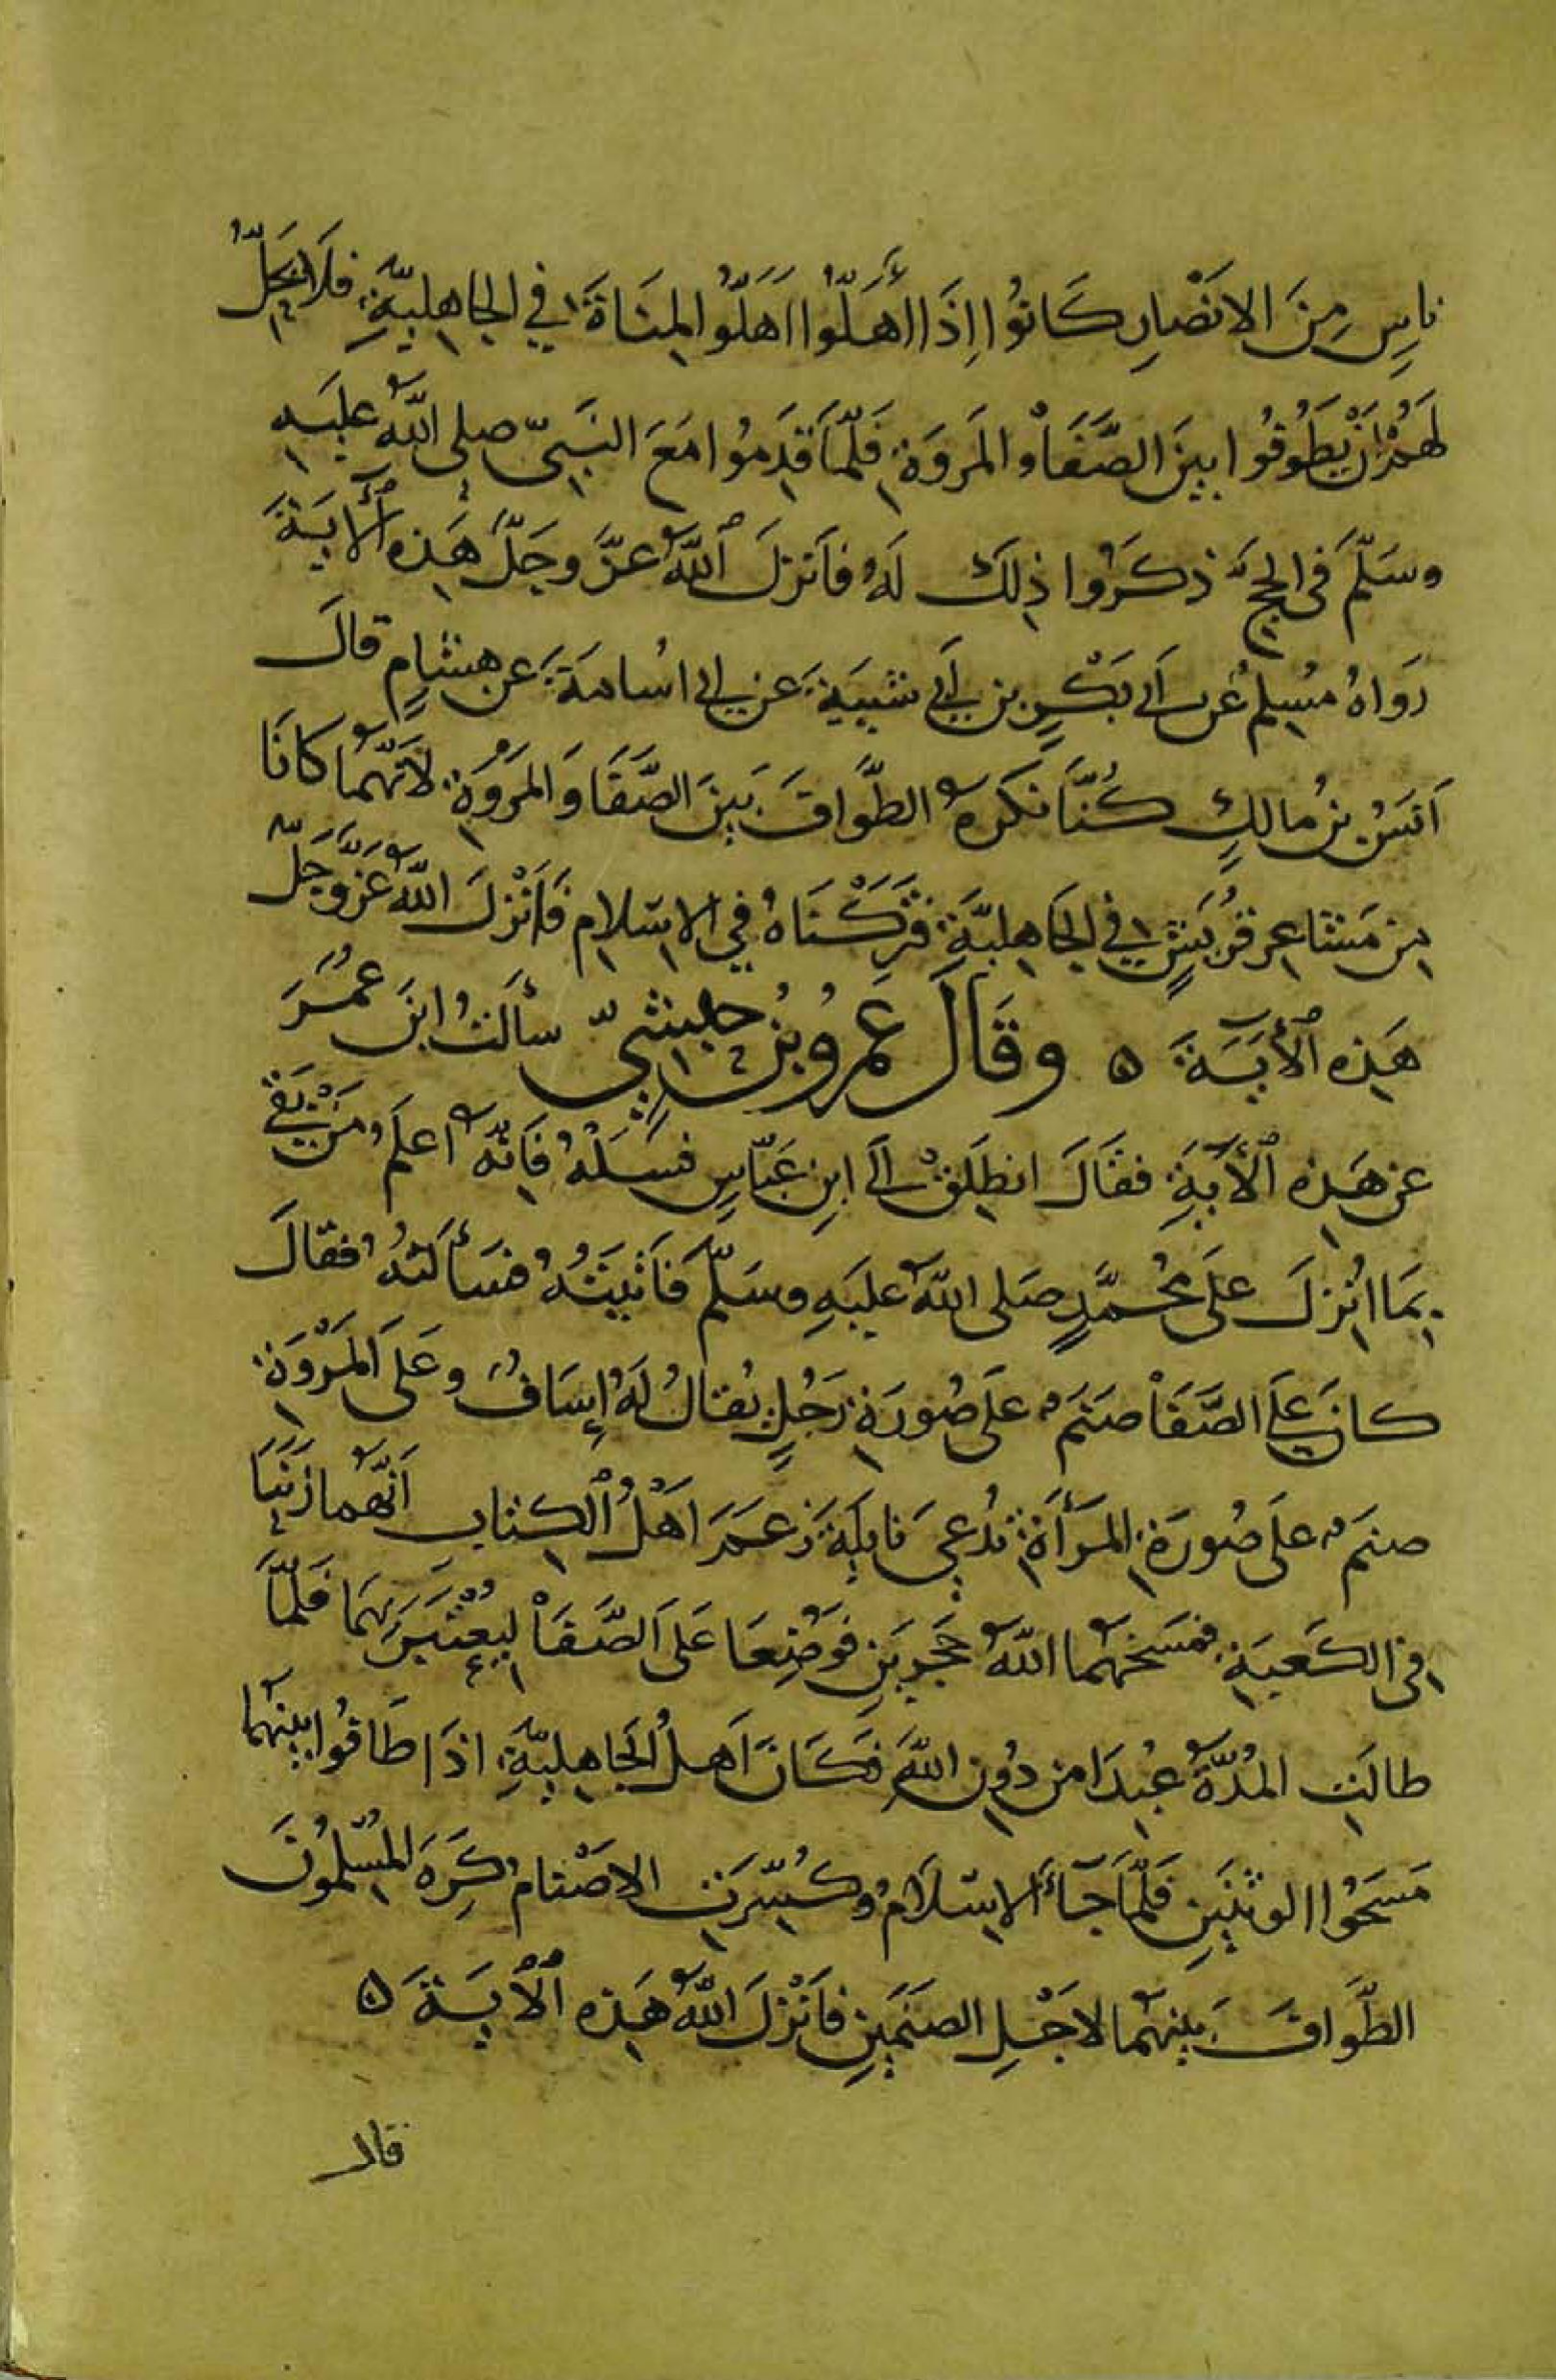 ناسٍ مِنَ الانصَارِ كَانُوا اِذَا اَهَلّوُا اَهَلّوُا لِمنَاةَ فِي الجاهِليّةِ فلَا يَحِلُّ
لهُمْ اَنْ يَطَوفُوا بينَ الصَّفَا وَالمَروَةِ فَلمّا قَدِمُوا مَعَ النَبيّ صلى اللّهُ علَيهِ
وسَلّمَ فى الحجّ ذكَرُوا ذلِكَ لَهُ فاَنزلَ ٱللّهُ عزَّ وجَلّ هَذِهِ ٱلأيَةَ
رَوَاهُ مُسِلمُ عَن اَبى بَكْرٍ بنِ اَبي شَيبَةَ عَن ابى اُسامَةَ عَن هشَامٍ قالَ
اَنسُ بنُ مالكٍ كُنّا نَكرَهُ الطَّوافَ بَينَ الصَّفَا وَالمَروَةِ لاَنّهُما كَانَا
مِن مَشَاعِرِ قُرَيشٍ فِي الجَاهِليَّةِ فَتَركْنَاهُ فِي الاِسلامِ فاَنْزلَ اللّهُ عَزَّ وَجَلّ
هَذِهِ ٱلأيَةَ ه وقَالَ عَمرُو بْنُ حبِشيّ سألتُ ابنَ عُمَرَ
عَن هَذِهِ ٱلأيَةِ فقَالَ انطَلِقْ اِلَى ابنِ عَبّاسٍ فسَلْهُ فَاِنّهُ اَعلَمُ مَنْ بَقىَ
بِمَا اُنزِلَ علَى مُحمَّدٍ صَلى اللّهُ عليَهِ وسَلّم فاَتيتُهُ فسَألتهُ فقالَ
كانَ علَى الصَّفَا صَنَم علَى صُورَةِ رَجُلٍ يُقالُ لهُ اِسَافُ وعَلى اَلمَرْوَةِ
صنَم علَى صُورَةِ المرَأَةِ تُدعى نَايلَةَ زعَمَ اَهْلُ ٱلكِتابِ اَنّهُما زنَيَا
فِى الكَعبَةِ فمَسَخهُما اللّهُ حجَرينِ فوُضِعَا عَلَى اَلصّفَا لِيُعْتَبَرَ بِهمَا فَلمّا
طالتِ المُدّةُ عُبِدَا مِن دُونِ اللّهِ فكَانَ اَهلُ الجَاهِليّةِ اذَا طَافُوا بينهُما
مَسَحُوا الوثنَينِ فلَمّا جَآءَ الاِسْلاَمُ وكُسِّرتِ الاصْنامُ كَرِهَ المُسْلمُونَ
الطّوافَ بينَهُما لاجْلِ الصنَمَينِ فاَنْزلَ اللّهُ هَذِهِ ٱلأيَةَ ه
قال